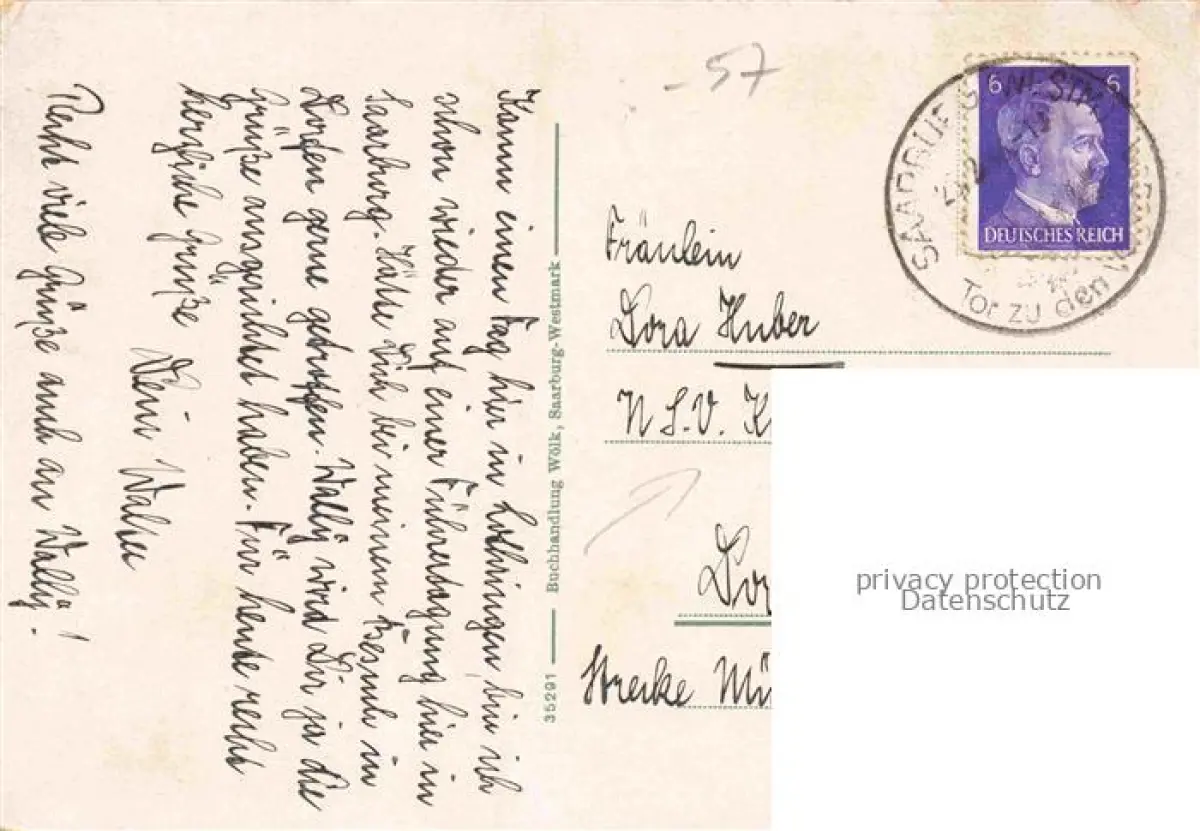 Kaum einen Tag hier in Lothringen, bin ich
schon wieder auf einer Führertagung hier in
Saarburg. Hätte Dich bei meinem Besuch in
Dorfen gerne getroffen. Wally wird Dir ja die
Grüße ausgerichtet haben. Für heute recht
herzliche Grüße
Dein Walter
Recht viele Grüße auch an Wally!
35291 Buchhandlung Wölk, Saarburg-Westmark
- 57
6 6
DEUTSCHES REICH
SAARBURG (WESTM
Tor zu den
Fräulein
Dora Huber
N.S.V. K
Dor
Strecke Mü
privacy protection
Datenschutz